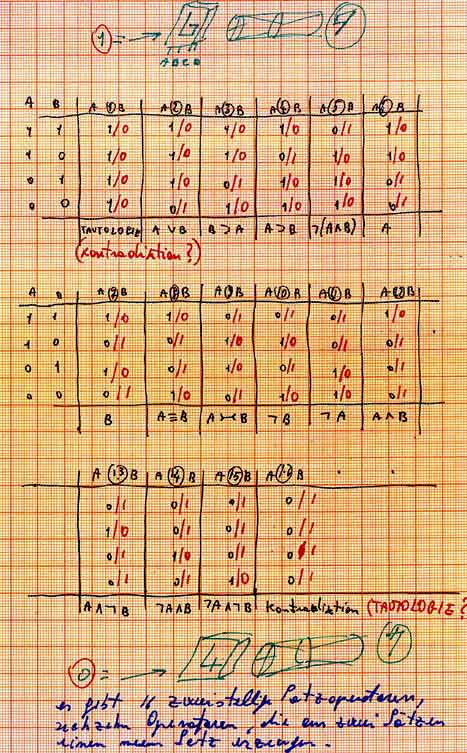 1 =
A B C D
A B A ① B A ② B A ③ B A ④ B A ⑤ B A ⑥ B
1 1 1/0 1/0 1/0 1/0 0/1 1/0
1 0 1/0 1/0 1/0 0/1 1/0 1/0
0 1 1/0 1/0 0/1 1/0 1/0 0/1
0 0 1/0 0/1 1/0 1/0 1/0 0/1
TAUTOLOGIE A ∨ B B ⊃ A A ⊃ B ¬(A∧B) A
(Kontradiktion?)
A B A ⑦ B A ⑧ B A ⑨ B A ⑩ B A ⑪ B A ⑫ B
1 1 1/0 1/0 0/1 0/1 0/1 1/0
1 0 0/1 0/1 1/0 1/0 0/1 0/1
0 1 1/0 0/1 0/1 1/0 0/1
0 0 0/1 1/0 0/1 1/0 1/0 0/1
B A ≡ B A >-< B ¬ B ¬ A A ∧ B
A ⑬ B A ⑭ B A ⑮ B A ⑯ B
0/1 0/1 0/1 0/1
1/0 0/1 0/1 0/1
0/1 1/0 0/1 0/1
0/1 0/1 1/0 0/1
A ∧ ¬ B ¬A ∧ B ¬A ∧ ¬B Kontradiktion (TAUTOLOGIE?
0 =
es gibt 16 zweistellige Satzoperatoren,
sechzehn Operatoren, die aus zwei Sätzen
einen neuen Satz erzeugen.